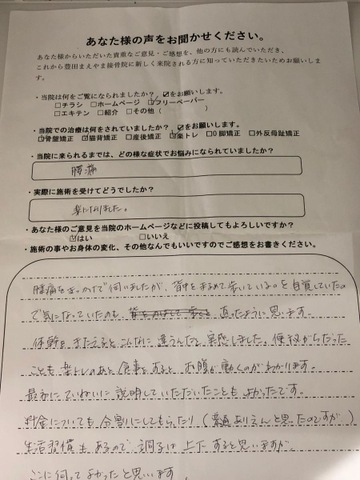 あなた様の声をお聞かせください。
あなた様からいただいた貴重なご意見・ご感想を、他の方にも読んでいただき、
これから豊田まえやま接骨院に新しく来院される方に知っていただきたいためお願いしま
す。
・当院は何をご覧になられましたか？☑をお願いします。
□チラシ □ホームページ ☑フリーペーパー
□エキテン □紹介 □その他（ ）
・当院での治療は何をされていましたか？☑をお願いします。
☑骨盤矯正 ☑猫背矯正 □産後矯正 ☑楽トレ □O脚矯正 □外反母趾矯正
・当院に来られるまでは、どの様な症状でお悩みになられていましたか？
腰痛
・実際に施術を受けてどうでしたか？
楽になりました。
・あなた様のご意見を当院のホームページなどに投稿してもよろしいですか？
☑はい □いいえ
・施術の事やお身体の変化、その他なんでもいいですのでご感想をお書きください。
腰痛をきっかけで伺いましたが、背中をまるめて歩いているのを自覚していた
で気になっていたのも、直ったように思います。
体幹をきたえるとこんなに違うんだと実感しました。便秘がちだった
ことも楽トレのあと食事をすると、お腹が働くのがわかります。
最初にていねいに説明していただいたこともよかったです。
料金についても分割にしてもらったり（普通ありえんと思ったのですが）
生活習慣もあるので調子は上下すると思いますが、
ここに伺ってよかったと思います。